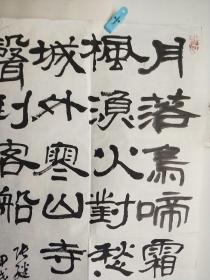 月落烏啼霜
楓漁火對愁
城外寒山寺
聲到客船
张继